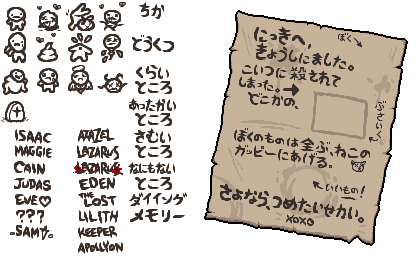 ちか
どうくつ
くらい
ところ
あったかい
ところ
さむい
ところ
なにもない
ところ
ダイイング
メモリー
ISAAC
MAGGIE
CAIN
JUDAS
EVE♡
???
SAMY
AZAZEL
LAZARUS
LAZARUS
EDEN
THE LOST
LILITH
KEEPER
APOLLYON
にっきへ、
きょうしにました。
こいつに殺されて
しまった。→
どこかの、
ぼく
ぼくのものは全ぶ、ねこの
ガッピーにあげる。
←いいもの!
さよなら、つめたいせかい。
XOXO